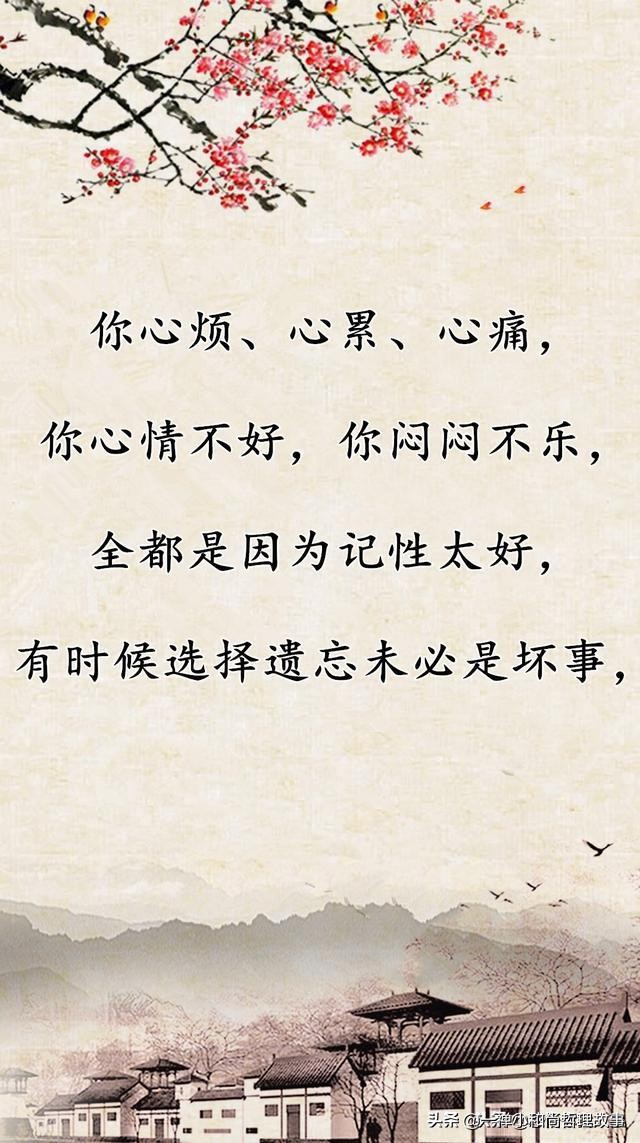 你心烦、心累、心痛，
你心情不好，你闷闷不乐，
全都是因为记性太好，
有时候选择遗忘未必是坏事，
头条 @一禅小和尚哲理故事